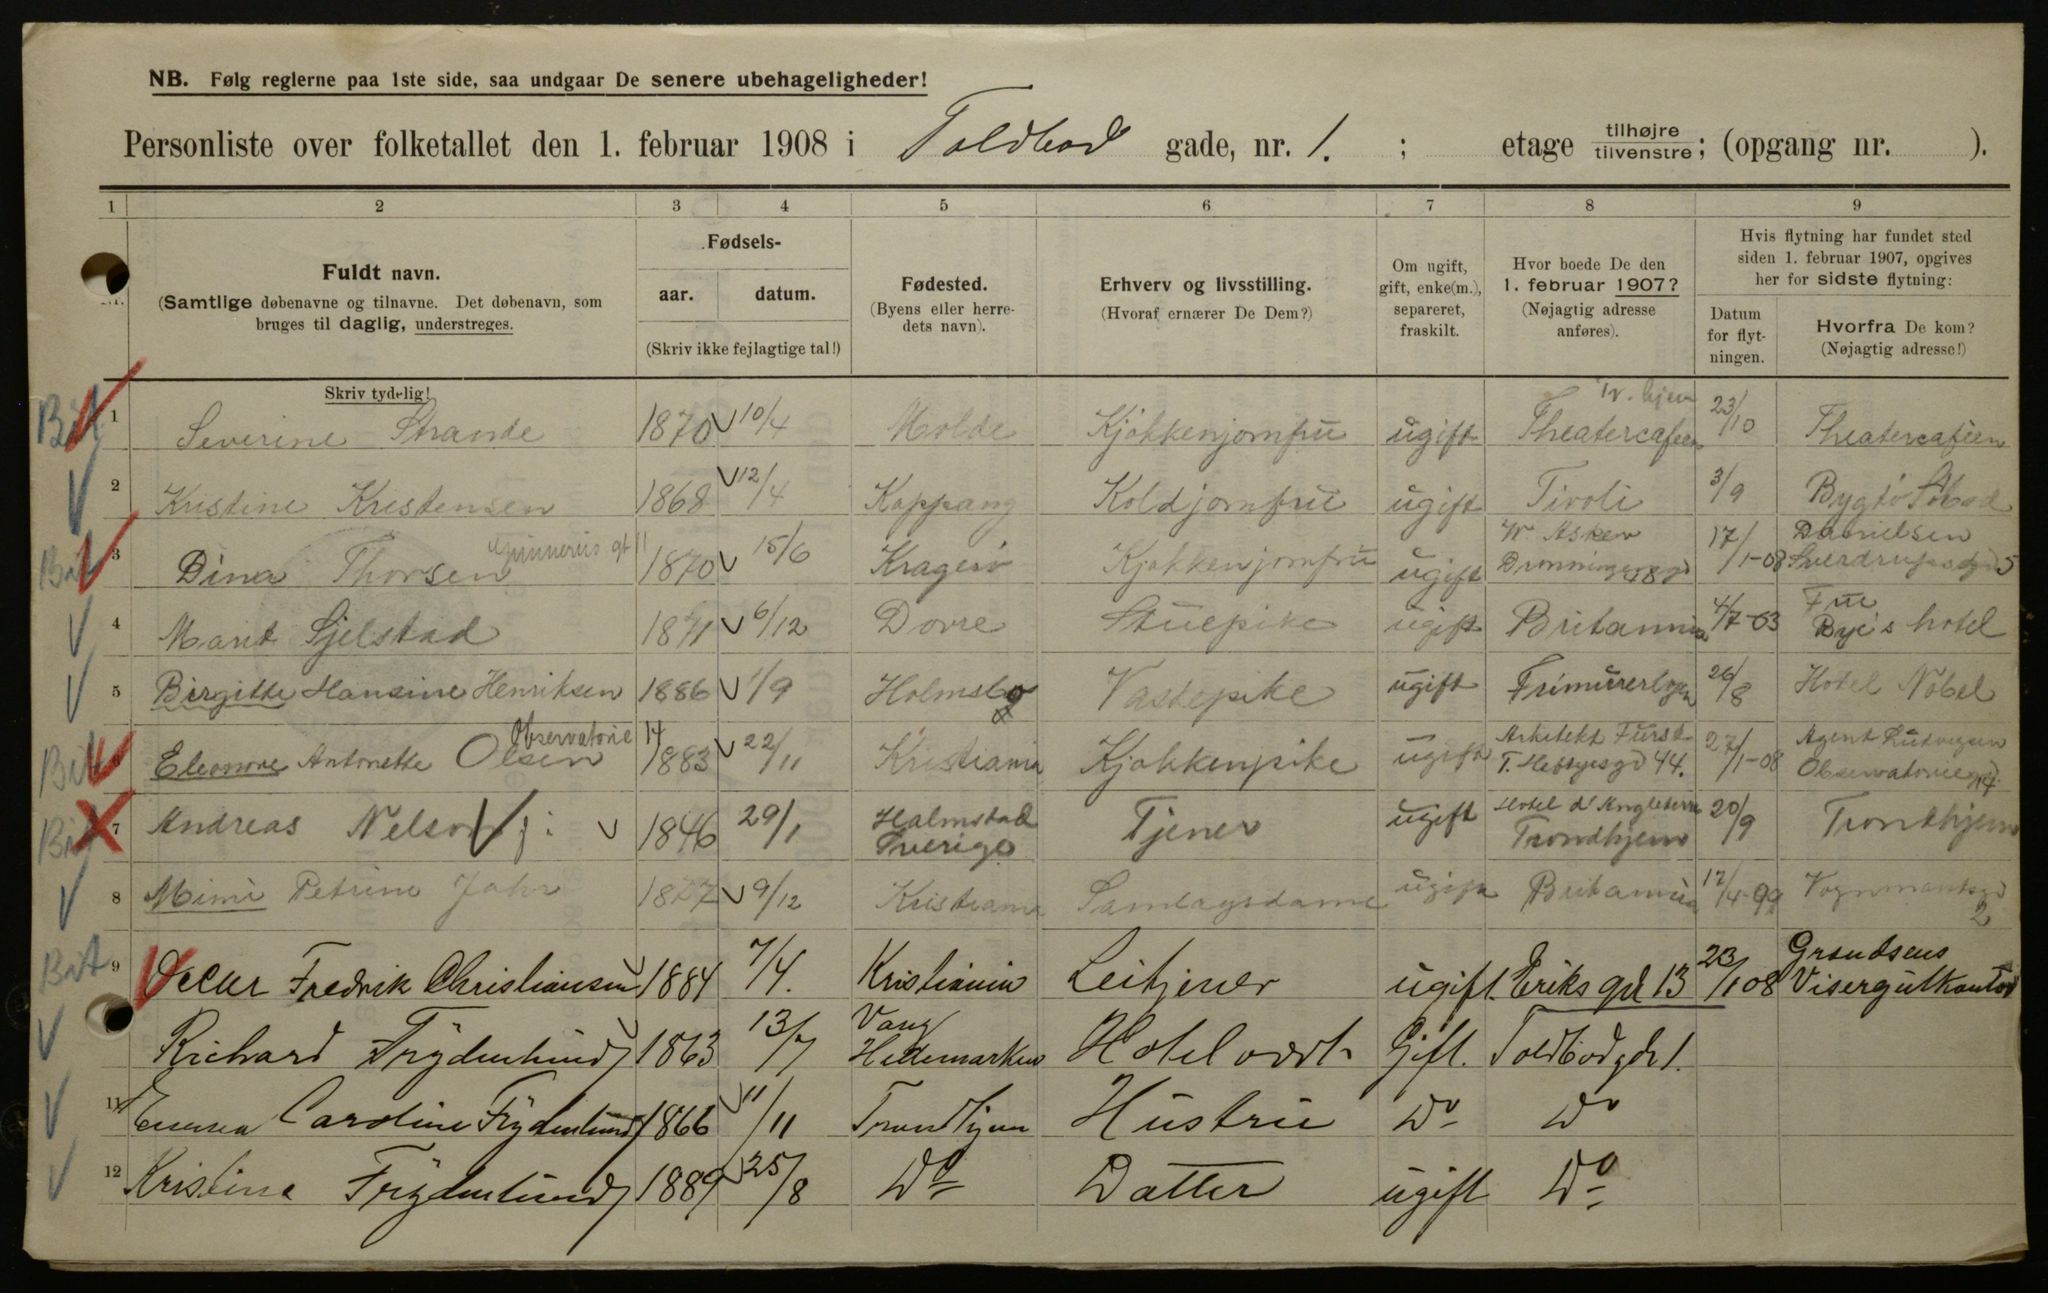 NB. Følg reglerne paa 1ste side, saa undgaar De senere ubehageligheder!
Personliste over folketallet den 1. februar 1908 i Toldbod gade, nr. 1. ; etage tilhøjre tilvenstre; (opgang nr. ).
1 2 3 4 5 6 7 8 9
Fuldt navn.
(Samtlige døbenavne og tilnavne. Det døbenavn, som
bruges til daglig, understreges.
Skriv tydelig!
Fødsels-
aar. datum.
(Skriv ikke fejlagtige tal!)
Fødested.
(Byens eller herre-
dets navn).
Erhverv og livsstilling.
(Hvoraf ernærer De Dem?)
Om ugift,
gift, enke(m.),
separeret,
fraskilt.
Hvor boede De den
1. februar 1907?
(Nøjagtig adresse
anføres).
Hvis flytning har fundet sted
siden 1. februar 1907, opgives
her for sidste flytning:
Datum
for flyt-
ningen.
Hvorfra De kom?
(Nøjagtig adresse!)
1 Severine Strande 1870 10/4 Molde Kjøkkenjomfru ugift Theatercafeen 23/10 Theatercaféen
2 Kristine Kristensen 1868 12/4 Koppang Koldjomfru ugift Tivoli 3/9 Bygdø Søbad
3 Dina Thorsen Gunnerus gt 11 1870 15/6 Kragerø Kjøkkenjomfru ugift W. Asker Dronningensgd 17/1-08 Danielsen Sverdrupsgd 5
4 Marit Sjelstad 1871 6/12 Dovre Stuepike ugift Britannia 4/7-03 Frü Bye's hotel
5 Birgitte Hansine Henriksen 1886 1/9 Holmsbo Vaskepike ugift Frimurerlogen 26/8 Hotel Nobel
6 Eleonore Antonette Olsen Observatorie 14 1883 22/11 Kristiania Kjøkkenpike ugift Arkitekt Fürst T. Heftyesgd 44. 27/1-08 Agent Ludvigsen Observatoriegd 14
7 Andreas Nelson 1846 29/1 Halmstad Sverige Tjener ugift Hotel d'Angleterre Trondhjem 20/9 Trondhjem
8 Mimi Petrine Jahr 1877 9/12 Kristiania ugift Britannia 17/4-99 Vognmandsgd 2
9 Oscar Fredrik Christiansen 1884 7/4. Kristiania Leitjener ugift. Eriks gd 13 23/1 08 Grændsens Visergutkontor
Richard Frydenlund 1863 13/7 Vang Hedemarken Hotelvært Gift. Toldbodgd 1.
11 Emma Caroline Frydenlund 1866 11/11 Trondhjem Hustru Do Do
12 Kristine Frydenlund 1889 25/8 Do Datter ugift Do